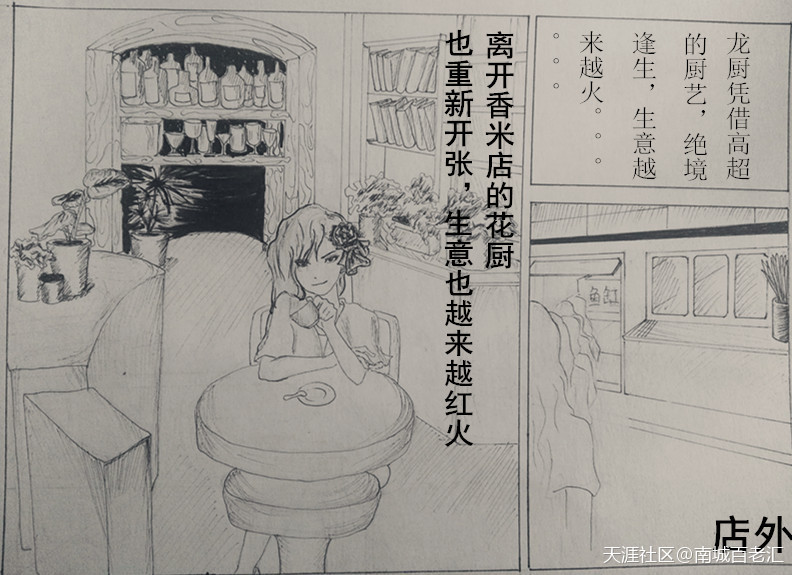 龙厨凭借高超
的厨艺，绝境
逢生，生意越
来越火。。。
。。。
离开香米店的花厨
也重新开张，生意也越来越红火
鱼缸
店外
天涯社区@南城百老汇